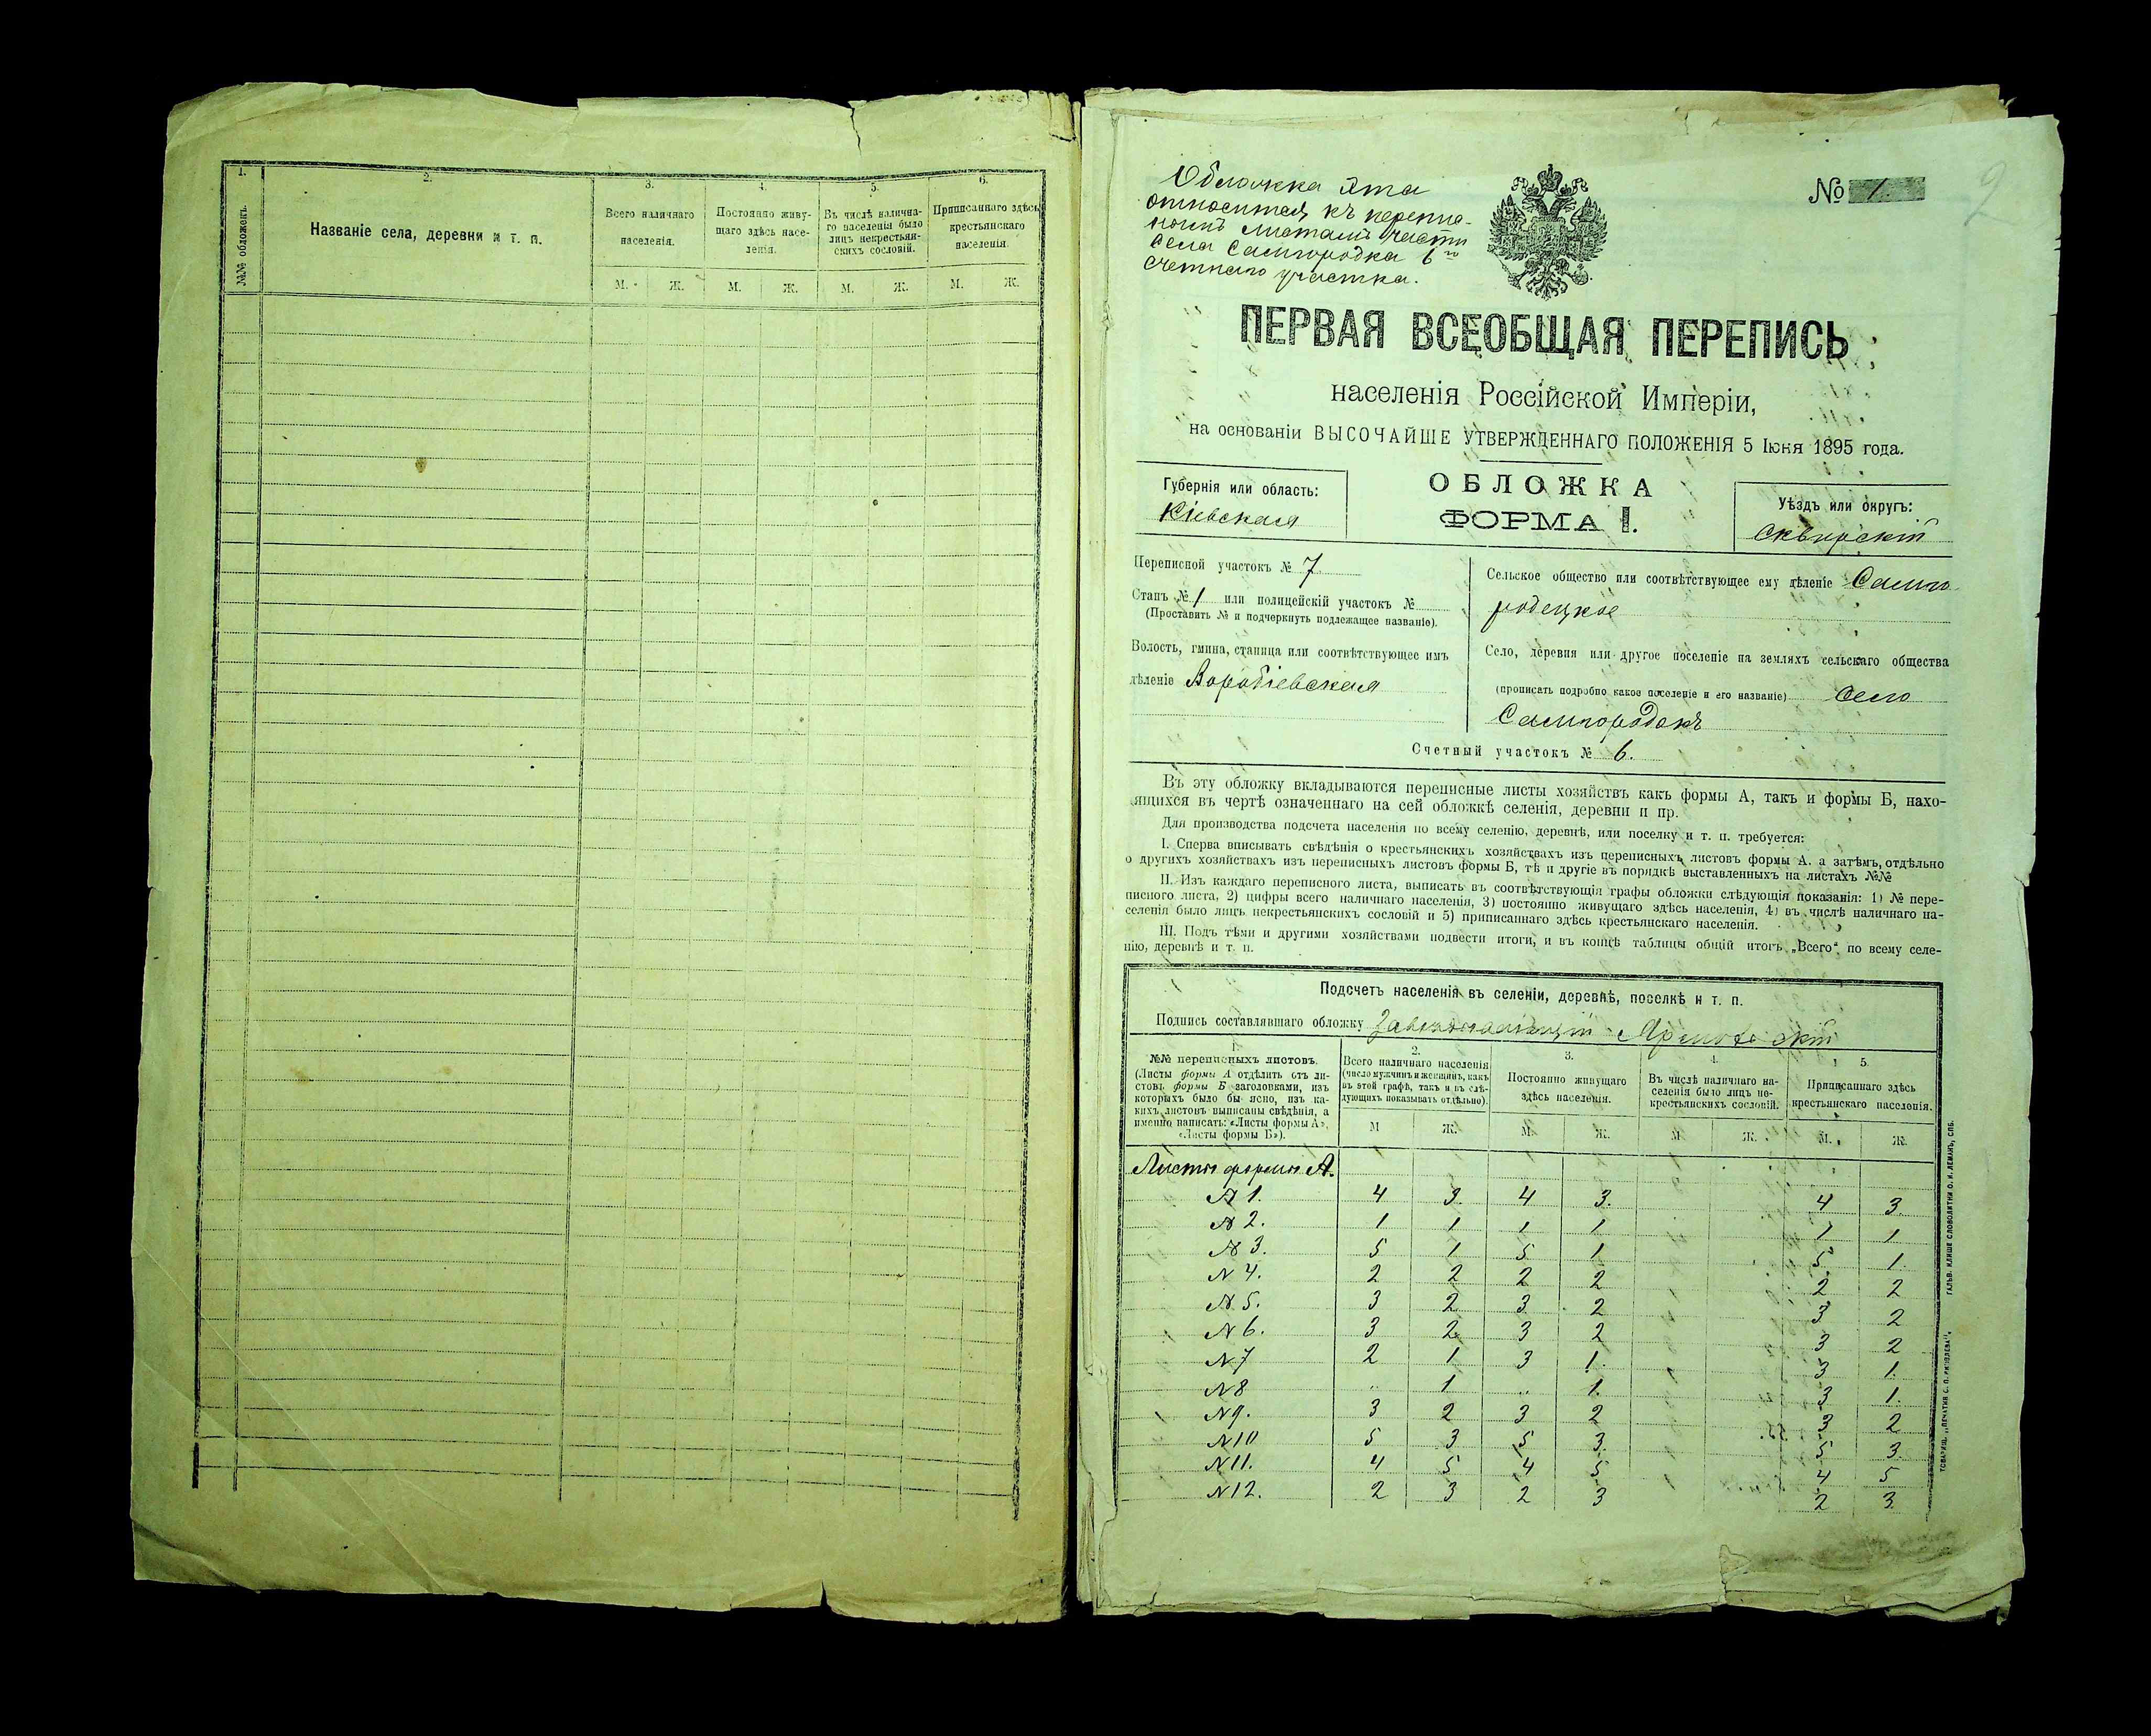 1.
2.
3.
4.
5.
6.
№№ обложекъ.
Названіе села, деревни и т. п.
Всего наличнаго
населенія.
Постоянно живу-
щаго здѣсь насе-
ленія.
Въ числѣ налична-
го населенія было
лицъ некрестьян-
скихъ сословій.
Приписаннаго здѣсь
крестьянскаго
населенія.
М. Ж. М. Ж. М. Ж. М. Ж.
Обложка эта
относится къ перепис-
нымъ листамъ части
села Самгородка 6го
счетнаго участка.
№ 1.
2
ПЕРВАЯ ВСЕОБЩАЯ ПЕРЕПИСЬ
населенія Россійской Имперіи,
на основаніи ВЫСОЧАЙШЕ УТВЕРЖДЕННАГО ПОЛОЖЕНІЯ 5 Іюня 1895 года.
Губернія или область:
Кіевская
ОБЛОЖКА
ФОРМА I.
Уѣздъ или округъ:
Сквирскій
Переписной участокъ № 7
Станъ № 1 или полицейскій участокъ №
(Проставить № и подчеркнуть подлежащее названіе).
Волость, гмина, станица или соотвѣтствующее имъ
дѣленіе Воробіевская
Сельское общество или соотвѣтствующее ему дѣленіе Самго
родецкое
Село, деревня или другое поселеніе на земляхъ сельскаго общества
(прописать подробно какое поселеніе и его названіе) село
Самгородокъ
Счетный участокъ № 6.
Въ эту обложку вкладываются переписные листы хозяйствъ какъ формы А, такъ и формы Б, нахо-
дящихся въ чертѣ означеннаго на сей обложкѣ селенія, деревни и пр.
Для производства подсчета населенія по всему селенію, деревнѣ, или поселку и т. п. требуется:
I. Сперва вписывать свѣдѣнія о крестьянскихъ хозяйствахъ изъ переписныхъ листовъ формы А. а затѣмъ, отдѣльно
о другихъ хозяйствахъ изъ переписныхъ листовъ формы Б, тѣ и другіе въ порядкѣ выставленныхъ на листахъ №№
II. Изъ каждаго переписного листа, выписать въ соотвѣтствующія графы обложки слѣдующія показанія: 1) № пере-
писного листа, 2) цифры всего наличнаго населенія, 3) постоянно живущаго здѣсь населенія, 4) въ числѣ наличнаго на-
селенія было лицъ некрестьянскихъ сословій и 5) приписаннаго здѣсь крестьянскаго населенія.
III. Подъ тѣми и другими хозяйствами подвести итоги, и въ концѣ таблицы общій итогъ „Всего“ по всему селе-
нію, деревнѣ и т. п.
Подсчетъ населенія въ селеніи, деревнѣ, поселкѣ и т. п.
Подпись составлявшаго обложку Завѣдывающій
№№ переписныхъ листовъ.
(Листы формы А отдѣлить отъ ли-
стовъ формы Б заголовками, изъ
которыхъ было бы ясно, изъ ка-
кихъ листовъ выписаны свѣдѣнія, а
именно написать: «Листы формы А»,
«Листы формы Б»).
2.
Всего наличнаго населенія
(число мужчинъ и женщинъ, какъ
въ этой графѣ, такъ и въ слѣ-
дующихъ показывать отдѣльно).
3.
Постоянно живущаго
здѣсь населенія.
4.
Въ числѣ наличнаго на-
селенія было лицъ не-
крестьянскихъ сословій.
5.
Приписаннаго здѣсь
крестьянскаго населенія.
М Ж. М. Ж. М. Ж. М. Ж.
Листы формы А.
№ 1. 4 3. 4 3. 4 3.
№ 2. 1 1 1 1 1 1
№ 3. 5 1 5 1 5 1.
№ 4. 2 2 2 2 2 2
№ 5. 3 2 3 2 3 2
№ 6. 3 2 3 2 3 2
№ 7 2 1 3 1. 3 1.
№ 8 " 1 " 1. 3 1.
№ 9. 3 2 3 2 3 2
№ 10 5 3 5 3. 5 3.
№ 11. 4 5 4 5 4 5
№ 12. 2 3 2 3 2 3.
ГАЛЬВ. КЛИШЕ СЛОВОЛИТНИ О. И. ЛЕМАНЪ, СПБ.